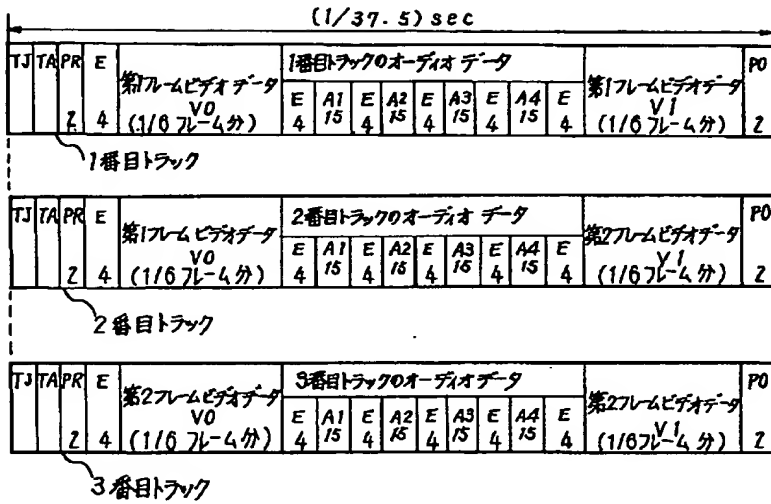 (1/37.5) sec
TJ TA PR E 2 4
第1フレームビデオデータ
V0
(1/6フレーム分)
1番目トラックのオーディオデータ
E A1 E A2 E A3 E A4 E
4 15 4 15 4 15 4 15 4
第1フレームビデオデータ
V1
(1/6フレーム分)
PO 2
1番目トラック
TJ TA PR E 2 4
第1フレームビデオデータ
V0
(1/6フレーム分)
2番目トラックのオーディオデータ
E A1 E A2 E A3 E A4 E
4 15 4 15 4 15 4 15 4
第2フレームビデオデータ
V1
(1/6フレーム分)
PO 2
2番目トラック
TJ TA PR E 2 4
第2フレームビデオデータ
V0
(1/6フレーム分)
3番目トラックのオーディオデータ
E A1 E A2 E A3 E A4 E
4 15 4 15 4 15 4 15 4
第2フレームビデオデータ
V1
(1/6フレーム分)
PO 2
3番目トラック